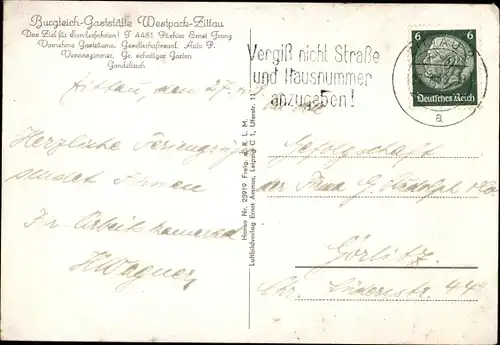 Burgteich-Gaststätte Westpark-Zittau
Das Ziel für Sonderfahrten! T 4481 Pächter Ernst Franz
Vornehme Gasträume, Gesellschaftssaal, Auto P.
Vereinszimmer, Gr. schattiger Garten
Gondelteich
Zittau, den 27.
Herzliche Feriengrüße
sendet Ihnen
Ihr Arbeitskamerad
HWagner
Hanso Nr. 25919 Freig. d. R. L. M.
Luftbildverlag Ernst Assmus, Leipzig C 1, Uferstr. 11
Vergiß nicht Straße
und Hausnummer
anzugeben!
6 6
Deutsches Reich
a
An die
Gefolgschaft
der Firma G.
Görlitz.
Chr. Lüdersstr. 44